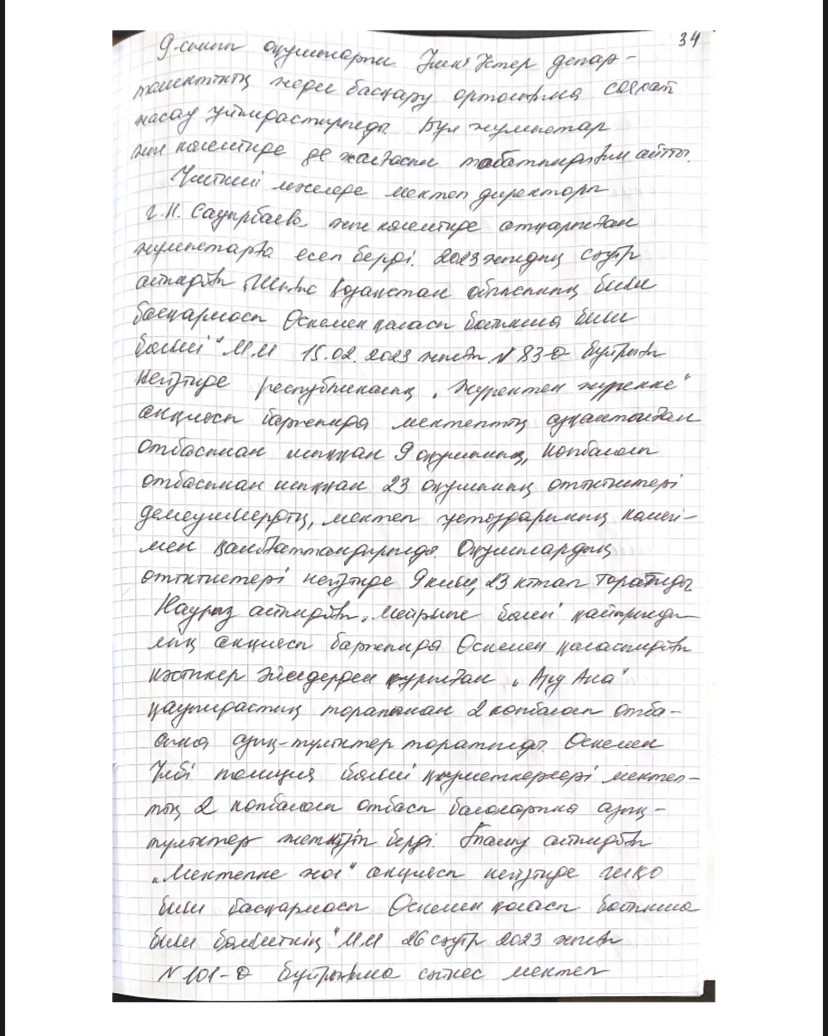 34
9-сынып оқушыларын Ішкі Істер департ-
аментінің жедел басқару орталығына саяхат
жасау ұйымдастырылды. Бұл жұмыстар
жыл көлемінде де жалғасын табатындығын айтты.
Үшінші мәселеде мектеп директоры
Г.Н. Садырбаева жыл көлемінде атқарылған
жұмыстарға есеп берді. 2023 жылдың сәуір
айында Шығыс Қазақстан облысының білім
басқармасы Өскемен қаласы бойынша білім
бөлімі" ММ 15.02.2023 жылғы N 83-Ө бұйрығы
негізінде республикалық „Жүректен жүрекке"
акциясы барысында мектептің аз қамтылған
отбасынан шыққан 9 оқушының, көпбалалы
отбасынан шыққан 23 оқушының өтініштері
демеушілердің, мектеп ұстаздарының көмегі-
мен қанағаттандырылды. Оқушылардың
өтініштері негізінде 9 киім, 23 кітап таратылды
Наурыз айында „Мейірімге бөлен" қайырымды
лық акциясы барысында Өскемен қаласындағы
кәсіпкер әйелдерден құрылған „Ару Ана"
қауымдастық тарапынан 2 көпбалалы отба-
сына азық-түліктер таратылды. Өскемен
Үлбі полиция бөлімі қызметкерлері мектеп-
тің 2 көпбалалы отбасы балаларына азық-
түліктер жеткізіп берді. Тамыз айында
„Мектепке жол" акциясы негізінде ШҚО
білім басқармасы Өскемен қаласы бойынша
білім бөлімінің" ММ 26 сәуір 2023 жылғы
N 101-Ө бұйрығына сәйкес мектеп